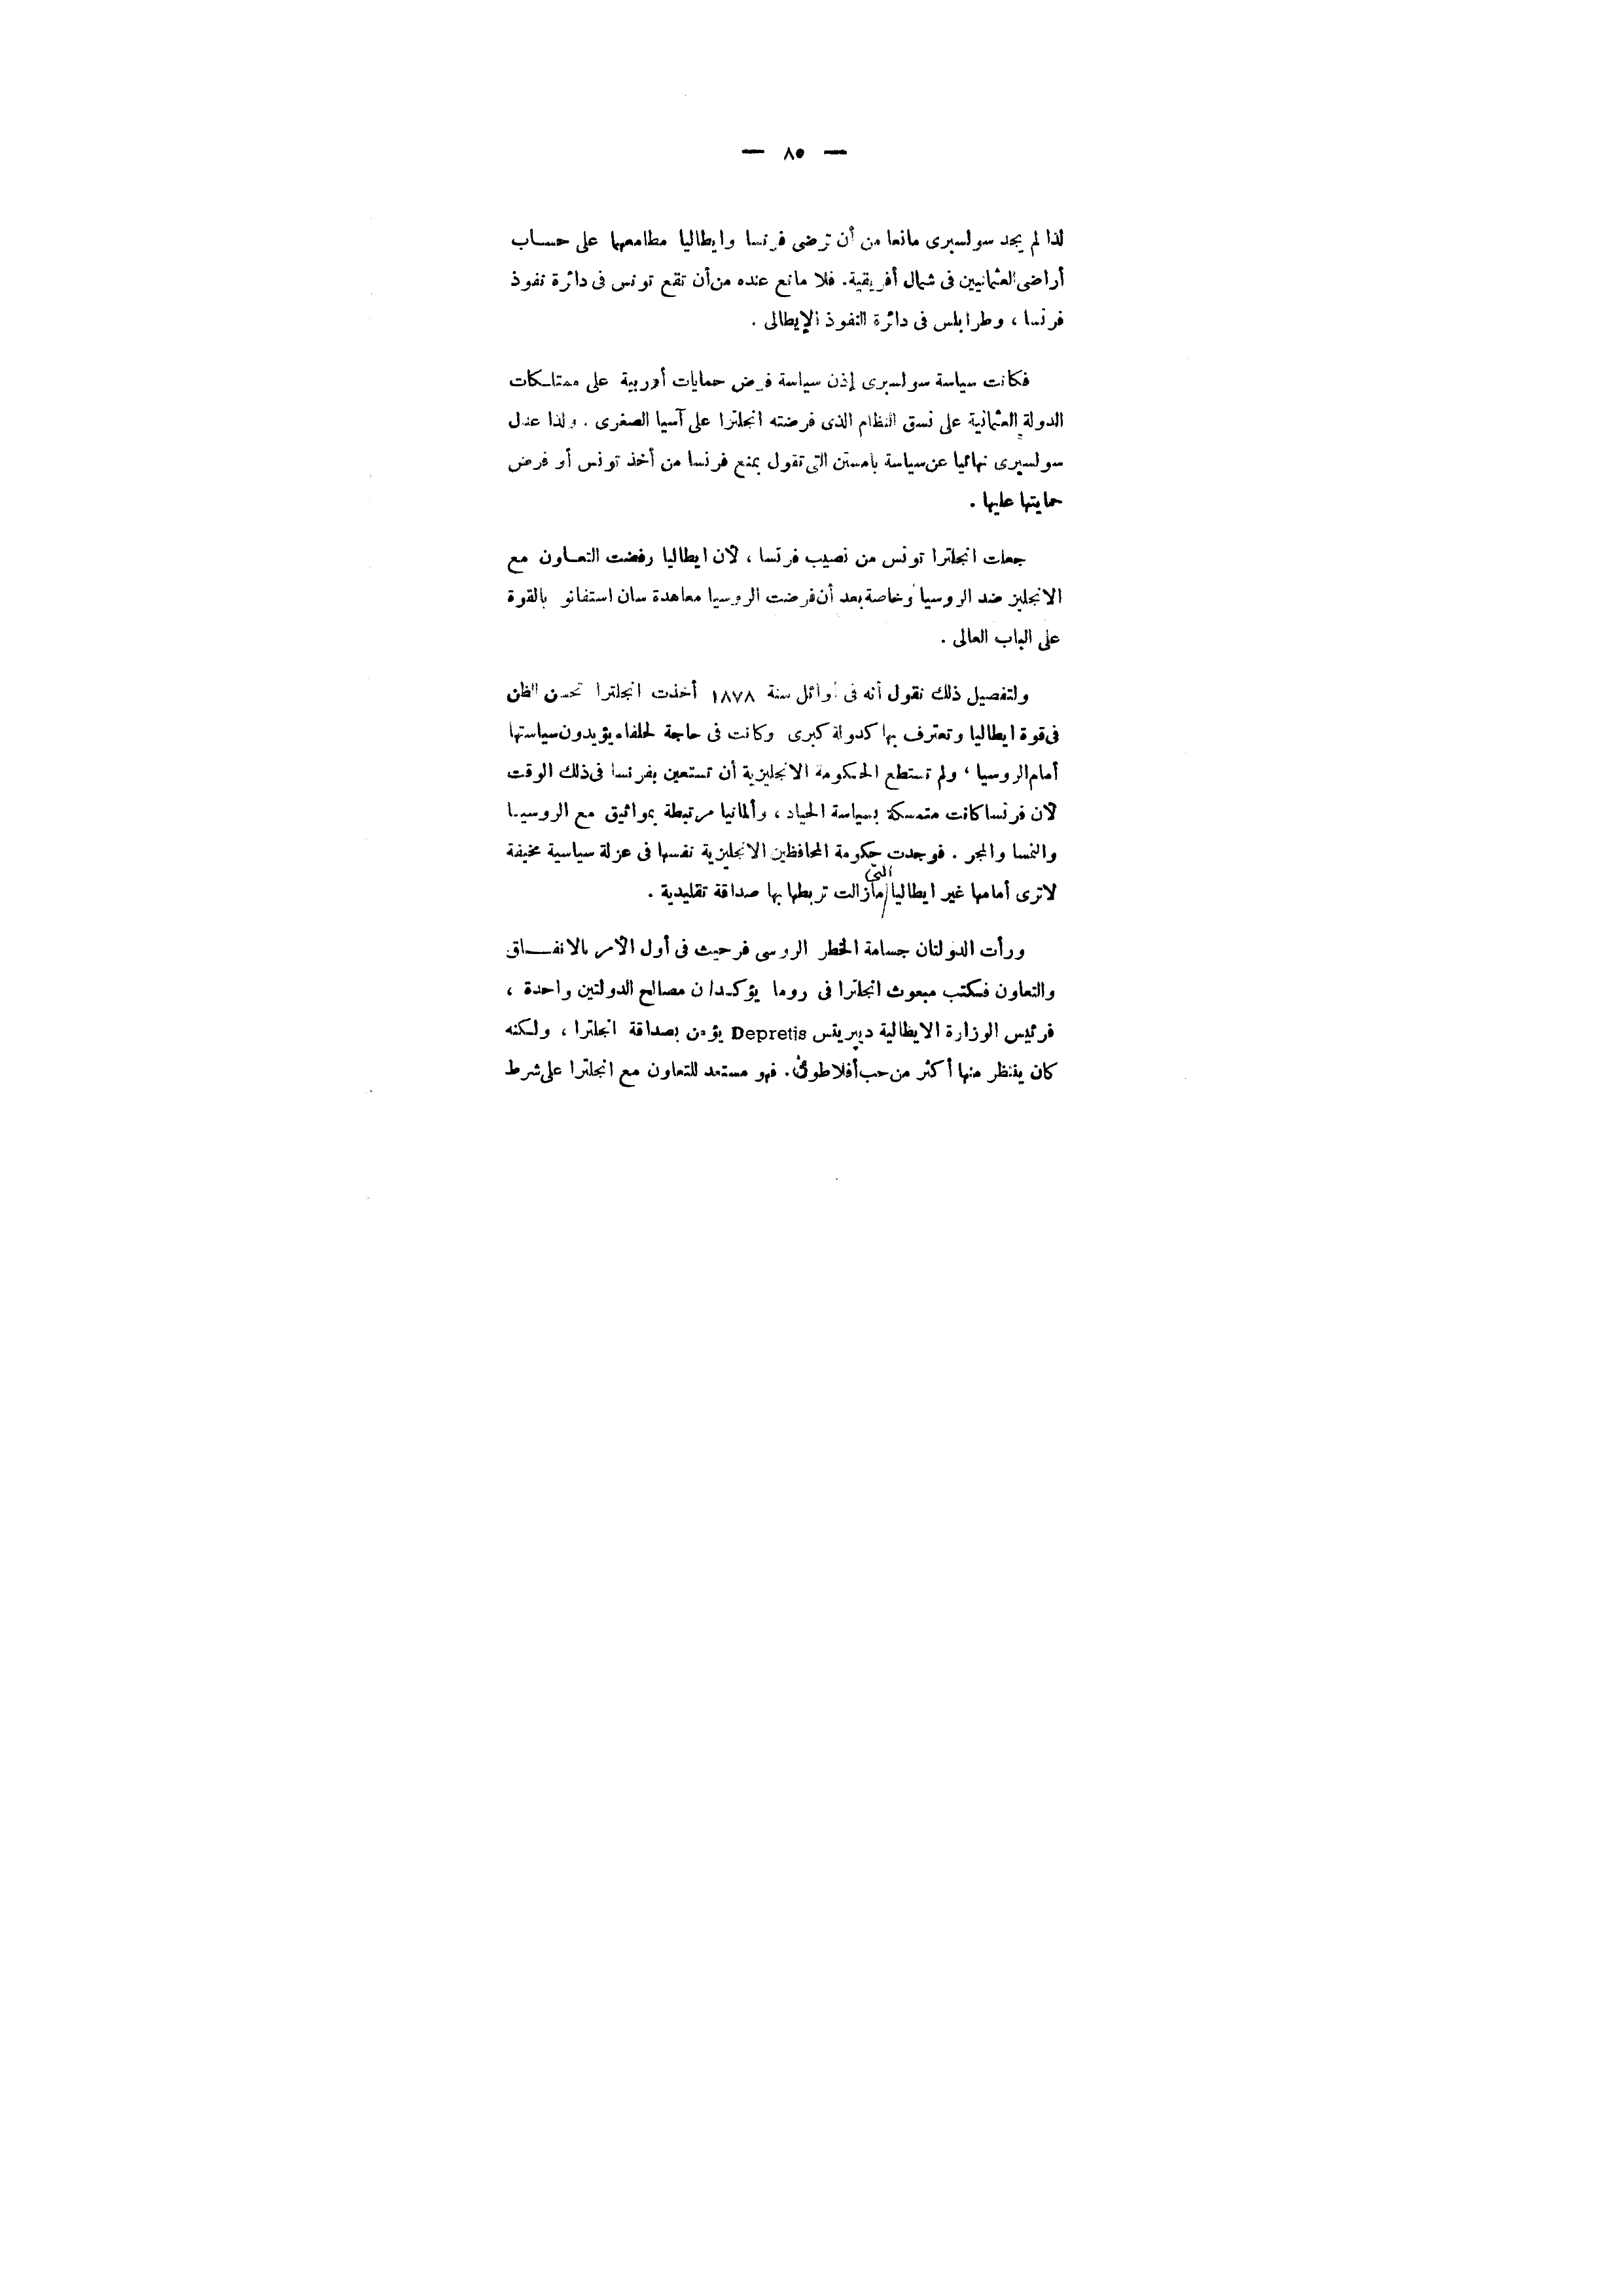 — ٨٥ —
لذا لم يجد سولسبرى مانعا من أن ترضى فرنسا وايطاليا مطامعهما على حساب
أراضى العثمانيين فى شمال أفريقية. فلا مانع عنده من أن تقع تونس فى دائرة نفوذ
فرنسا ، وطرابلس فى دائرة النفوذ الإيطالى .
فكانت سياسة سولسبرى إذن سياسة فرض حمايات أوربية على ممتلكات
الدولة العثمانية على نسق النظام الذى فرضته انجلترا على آسيا الصغرى . ولذا عدل
سولسبرى نهائيا عن سياسة بامستن التى تقول بمنع فرنسا من أخذ تونس أو فرض
حمايتها عليها .
جعلت انجلترا تونس من نصيب فرنسا ، لأن ايطاليا رفضت التعاون مع
الانجليز ضد الروسيا وخاصة بعد أن فرضت الروسيا معاهدة سان استفانو بالقوة
على الباب العالى .
ولتفصيل ذلك نقول أنه فى أوائل سنة ١٨٧٨ أخذت انجلترا تحسن الظن
فى قوة ايطاليا وتعترف بها كدولة كبرى وكانت فى حاجة لحلفاء يؤيدون سياستها
أمام الروسيا ، ولم تستطع الحكومة الانجليزية أن تستعين بفرنسا فى ذلك الوقت
لأن فرنسا كانت متمسكة بسياسة الحياد ، وألمانيا مرتبطة بمواثيق مع الروسيا
والنمسا والمجر . فوجدت حكومة المحافظين الانجليزية نفسها فى عزلة سياسية مخيفة
لاترى أمامها غير ايطاليا التى مازالت تربطها بها صداقة تقليدية .
ورأت الدولتان جسامة الخطر الروسى فرحيث فى أول الأمر بالاتفاق
والتعاون فكتب مبعوث انجلترا فى روما يؤكد ان مصالح الدولتين واحدة ،
فرئيس الوزارة الايطالية ديبريتس Depretis يؤمن بصداقة انجلترا ، ولكنه
كان ينتظر منها أكثر من حب أفلاطونى. فهو مستعد للتعاون مع انجلترا على شرط